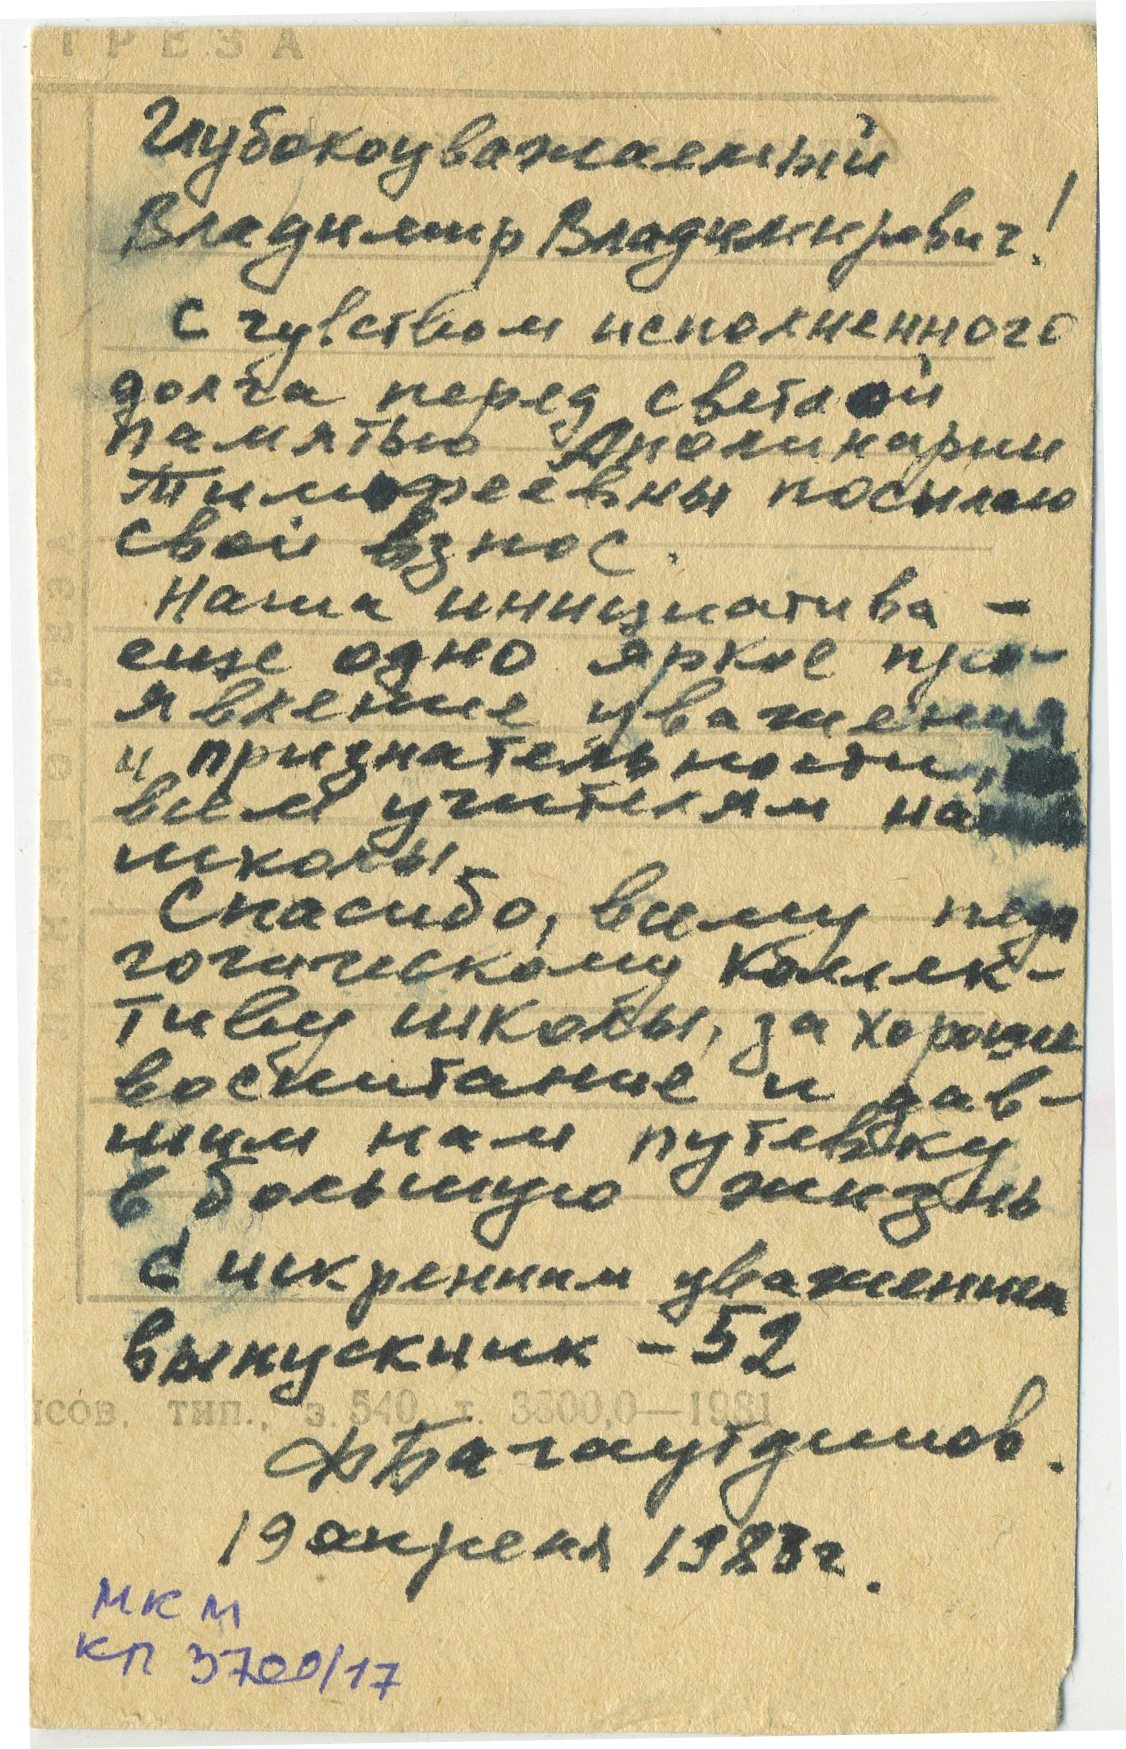 ГРЕЗА
Глубокоуважаемый
Владимир Владимирович!
С чувством исполненного
долга перед светлой
памятью Аполинарии
Тимофеевны посылаю
свой взнос.
Наша инициатива –
еще одно яркое про-
явление уважения
и признательности,
всем учителям
школы.
Спасибо, всему педа
гогическому коллек-
тиву школы, за хорошее
воспитание и дав-
шим нам путевку
в большую жизнь
С искренним уважением
выпускник – 52
Багаутдинов.
19 апреля 1983 г.
исов. тип., з. 540 т. 3300,0—1981
МКМ
КП 3700/17